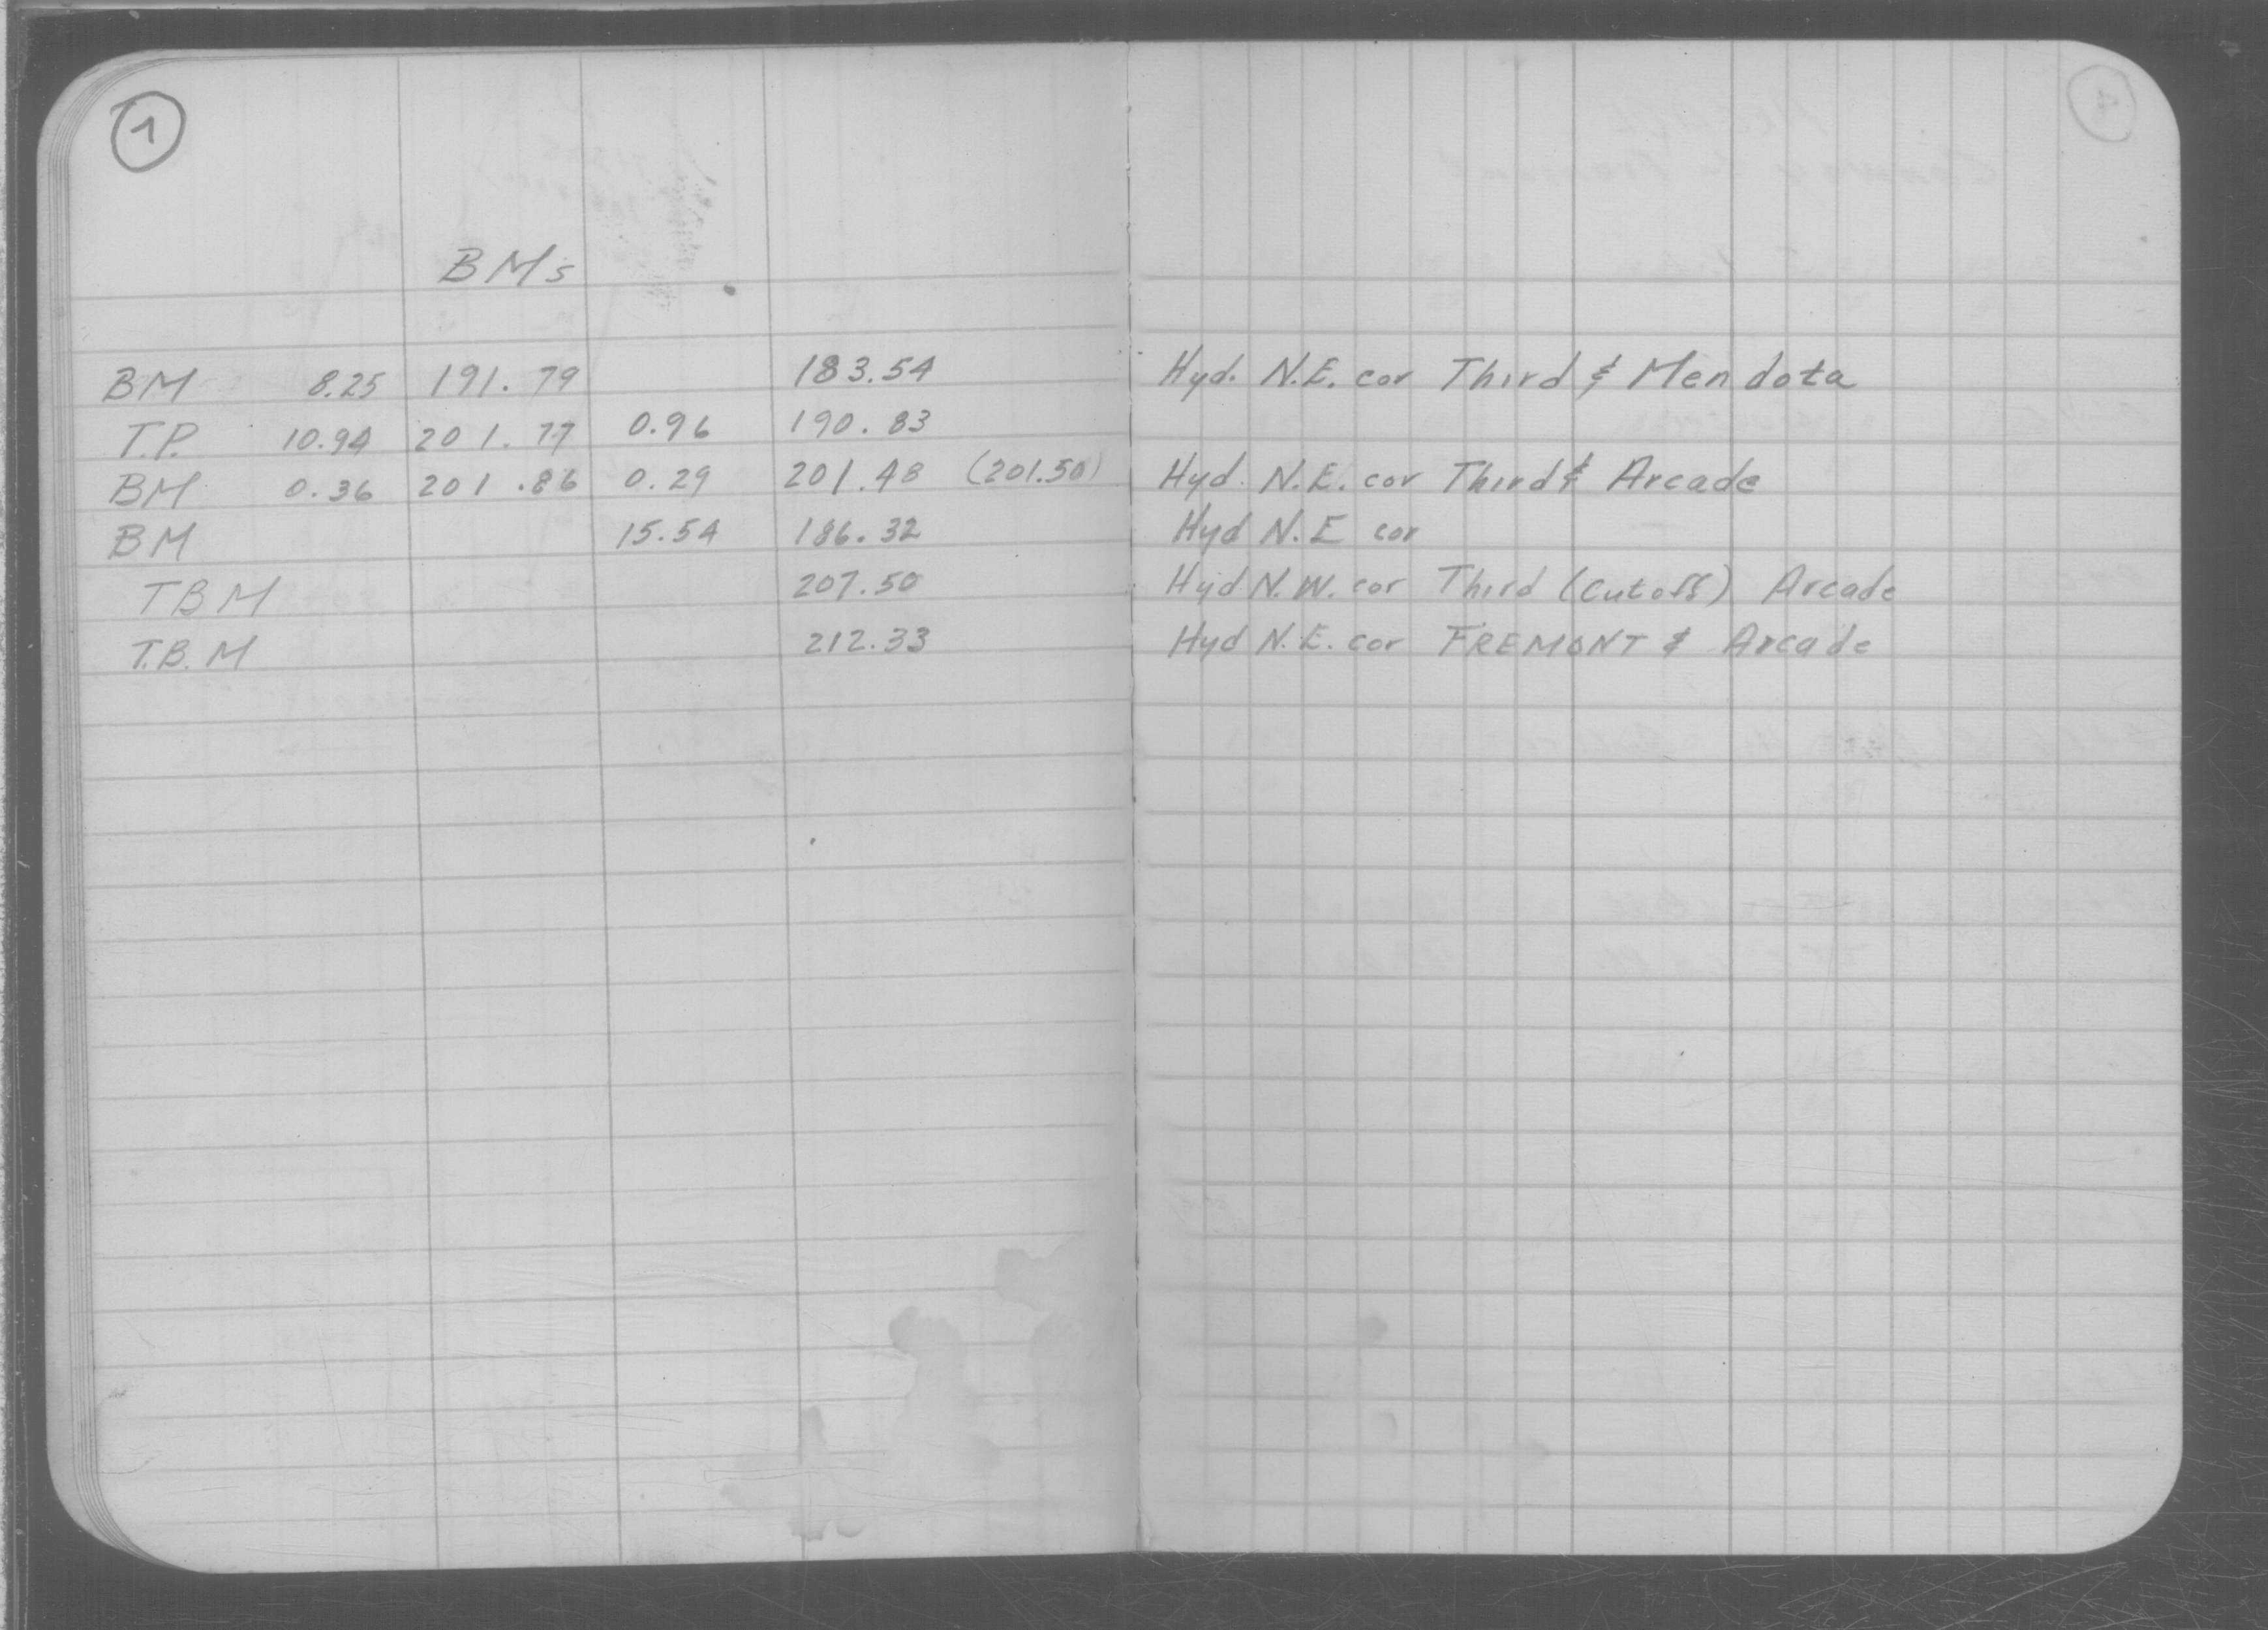 1
BMs
BM 8.25 191.79 183.54 Hyd. N.E. cor Third & Mendota
T.P. 10.94 201.77 0.96 190.83
BM 0.36 201.86 0.29 201.48 (201.50) Hyd. N.E. cor Third & Arcade
BM 15.54 186.32 Hyd N.E cor
TBM 207.50 Hyd N.W. cor Third (Cutoff) Arcade
T.B.M 212.33 Hyd N.E. cor FREMONT & Arcade